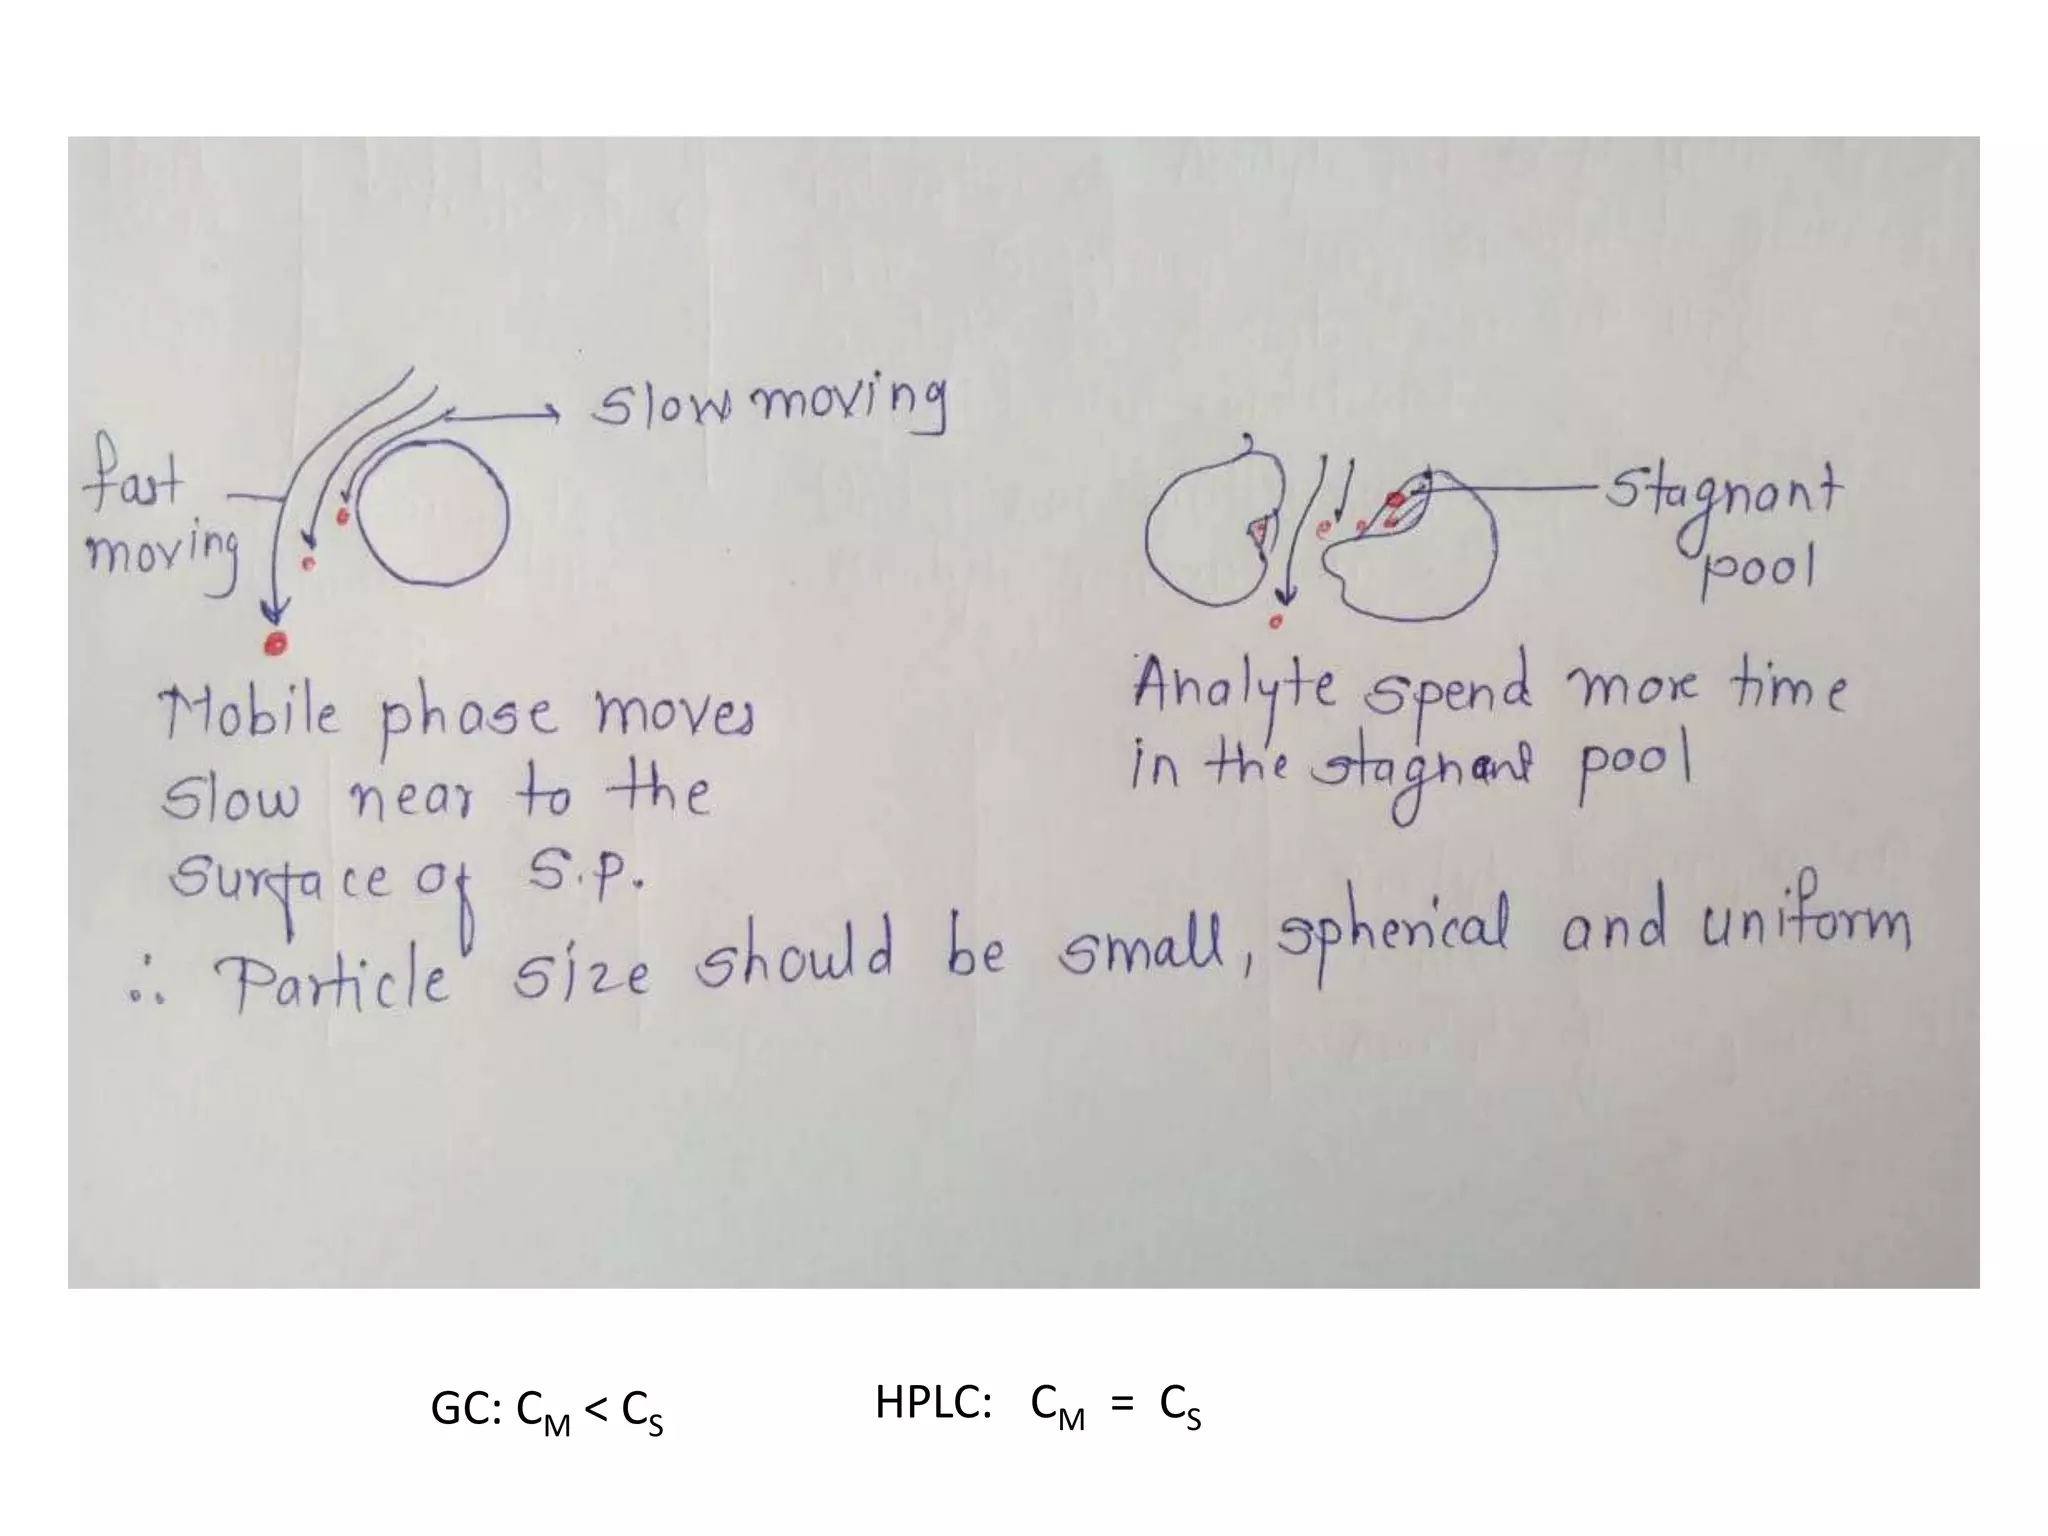 fast
moving
slow moving
Mobile phase moves
slow near to the
surface of S.P.
stagnant
pool
Analyte spend more time
in the stagnant pool
∴ Particle size should be small, spherical and uniform
GC: CM < CS
HPLC: CM = CS